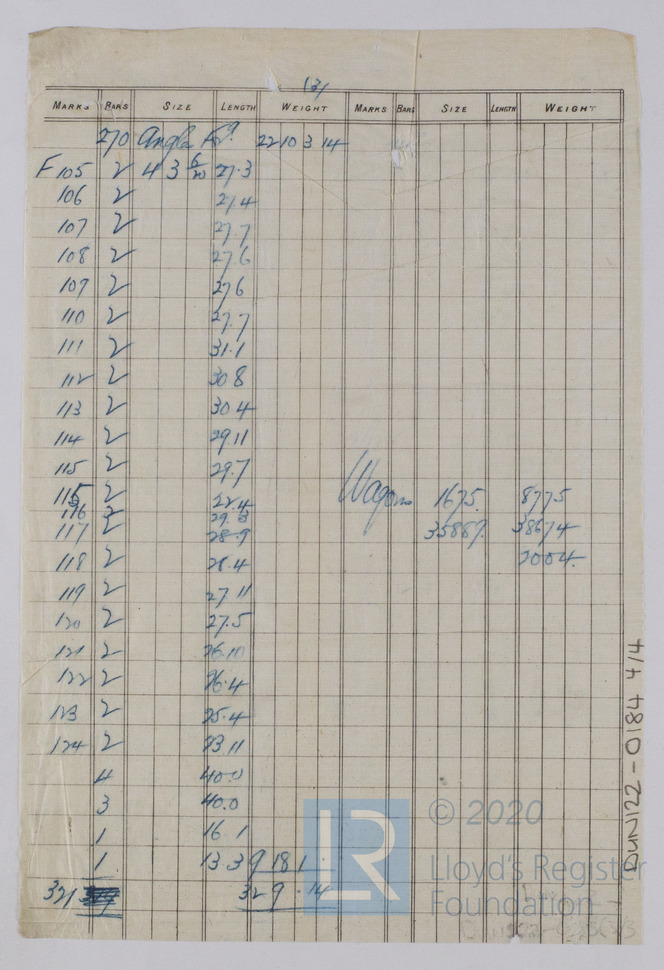 (3)
MARKS BARS SIZE LENGTH WEIGHT MARKS BARS SIZE LENGTH WEIGHT
270 Angle Fd. 22 10 3 14
F 105 2 4 3 6/20 27.3
106 2 27.4
107 2 27.7
108 2 27.6
109 2 27 6
110 2 27.7
111 2 31.1
112 2 30 8
113 2 30 4
114 2 29 11
115 2 29.7
115 2 22.4
Wagons 1675. 8775
116 2 29.3
117 2 28.9
35887. 38674
118 2 28.4
2004.
119 2 27 11
120 2 27.5
121 2 26.10
122 2 26.4
123 2 25.4
124 2 23 11
4 40.0
3 40.0
1 16.1
1 13.3 9 18 1 .
321 32 9 . 14
DUN122-0184 4/4
© 2020
Lloyd's Register
Foundation
LR